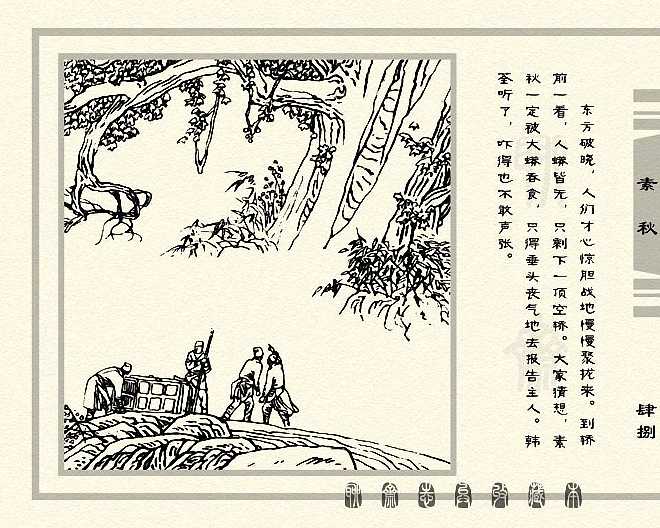 东方破晓，人们才心惊胆战地慢慢聚拢来。到轿
前一看，人蟒皆无，只剩下一顶空轿。大家猜想，素
秋一定被大蟒吞食，只得垂头丧气地去报告主人。韩
荃听了，吓得也不敢声张。
素秋
肆捌